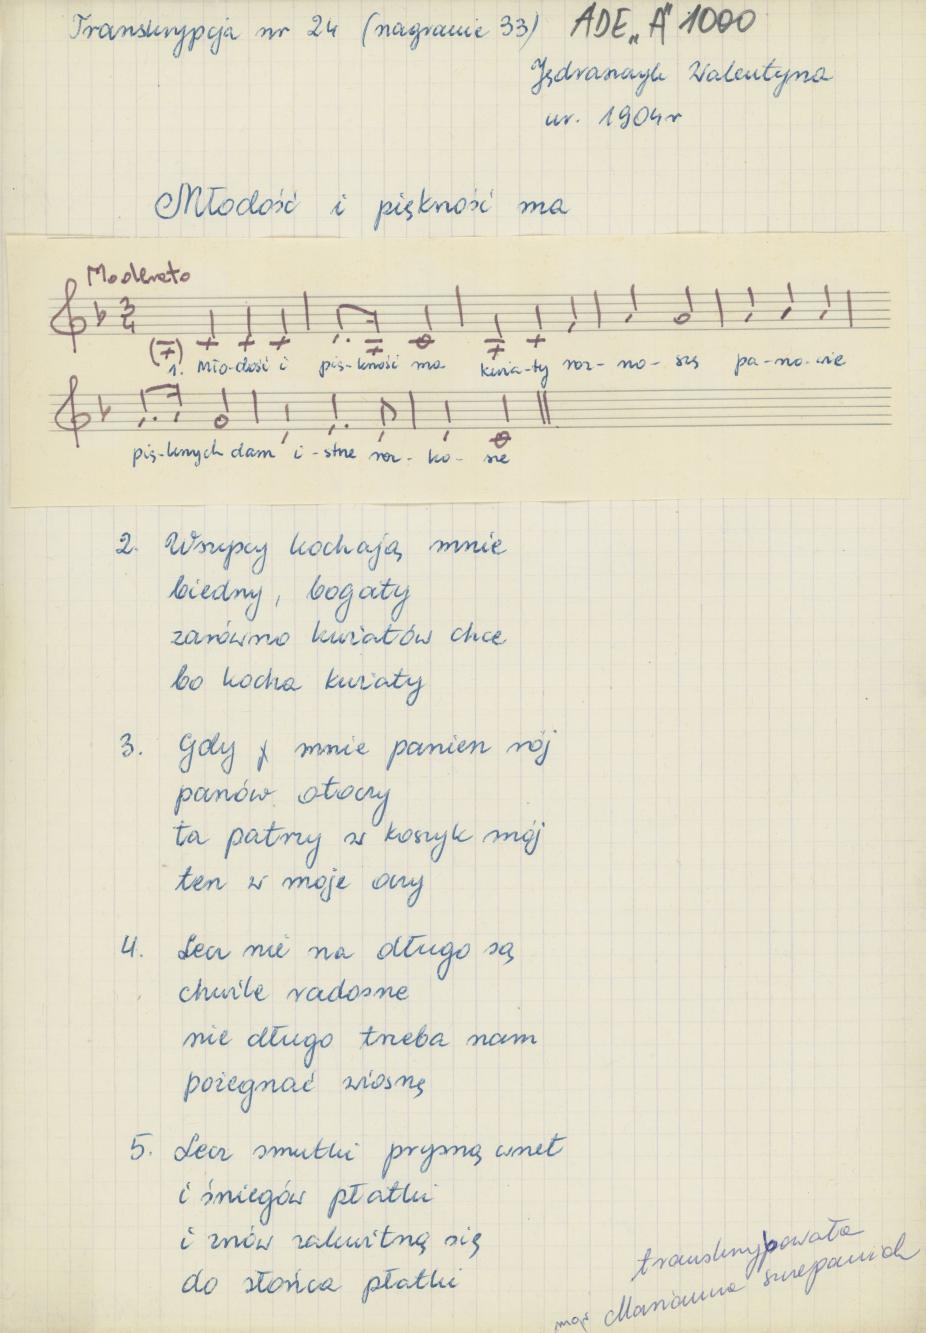 Transkrypcja nr 24 (nagranie 33) ADE „A" 1000
Jędraszczyk Walentyna
ur. 1904r
Młodość i piękność ma
Moderato
1. Mło-dość i pięk-kność ma kwia-ty roz-no-szę pa-no-wie
pię-knych dam i-stne roz-ko-sze
2. Wszyscy kochają mnie
biedny, bogaty
zarówno kwiatów chce
bo kocha kwiaty
3. Gdy mnie panien rój
panów otoczy
ta patrzy w koszyk mój
ten w moje oczy
4. Lecz nie na długo są
chwile radosne
nie długo trzeba nam
pożegnać wiosnę
5. Lecz smutki prysną wnet
i śniegów płatki
i znów zakwitną się
do słońca płatki
transkrybowała
mgr Marianna